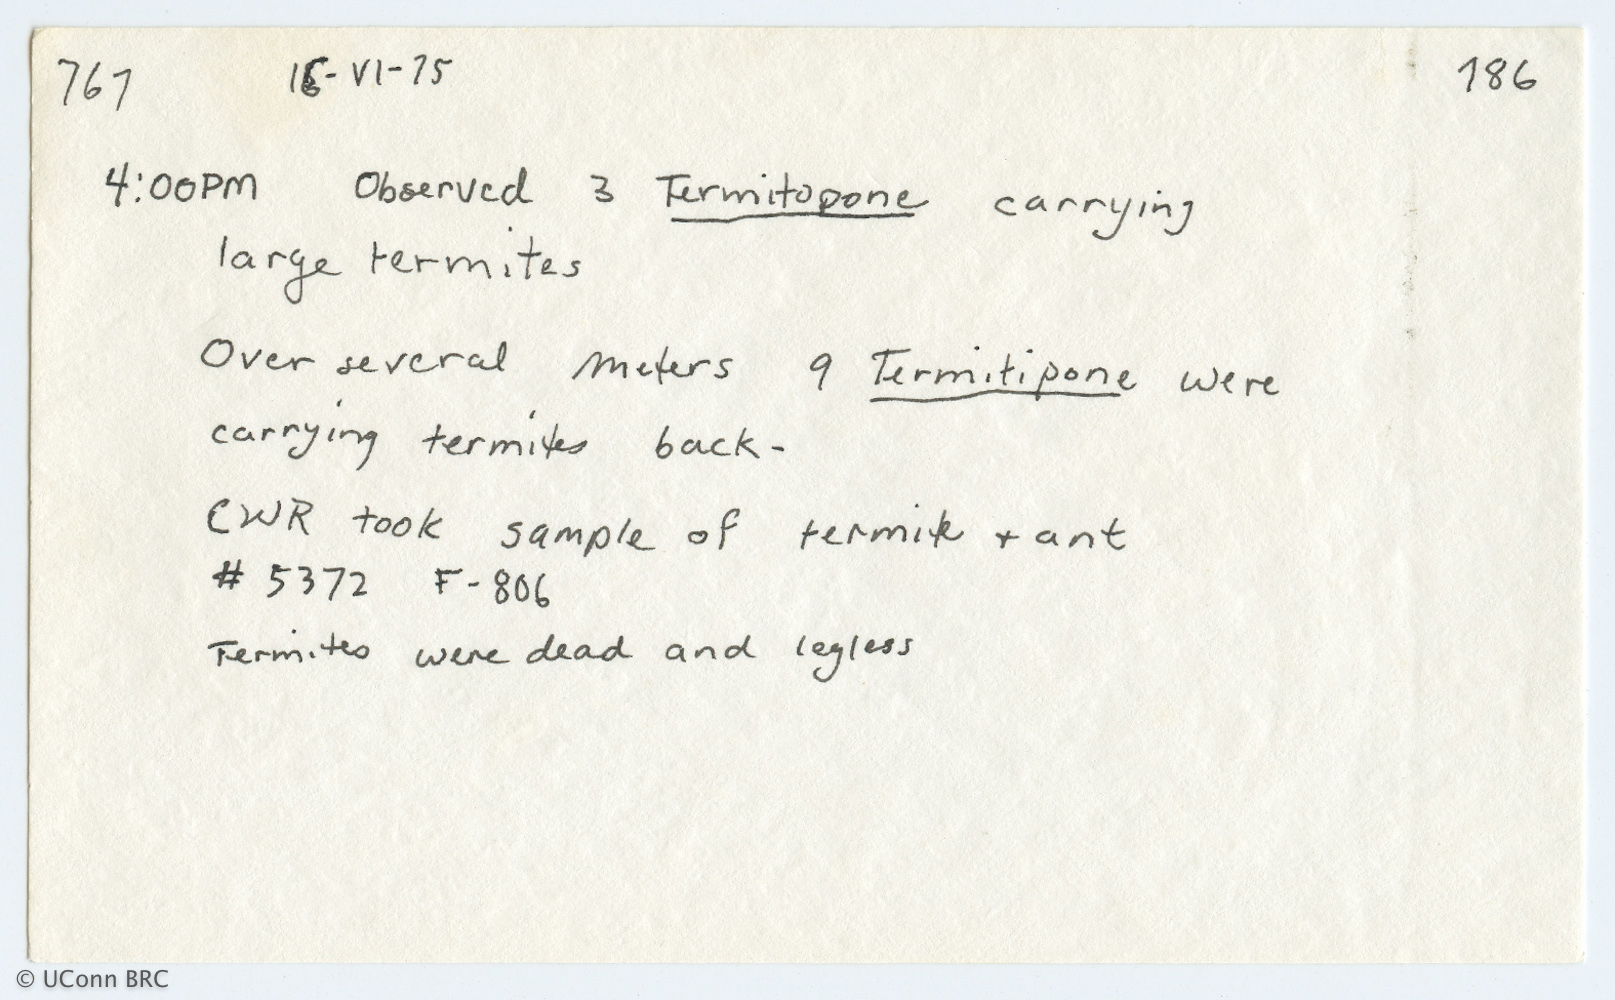 767 16-VI-75 186
4:00PM Observed 3 Termitopone carrying
large termites
Over several meters 9 Termitipone were
carrying termites back-
CWR took sample of termite + ant
# 5372 F-806
Termites were dead and legless
© UConn BRC